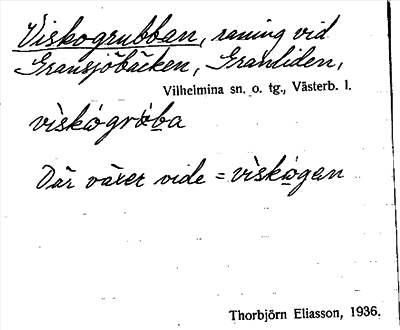 Viskogrubban, raning vid
Gransjöbäcken, Granliden,
Vilhelmina sn. o. tg., Västerb. l.
vìskògròba
Där växer vide = vìskògen
Thorbjörn Eliasson, 1936.